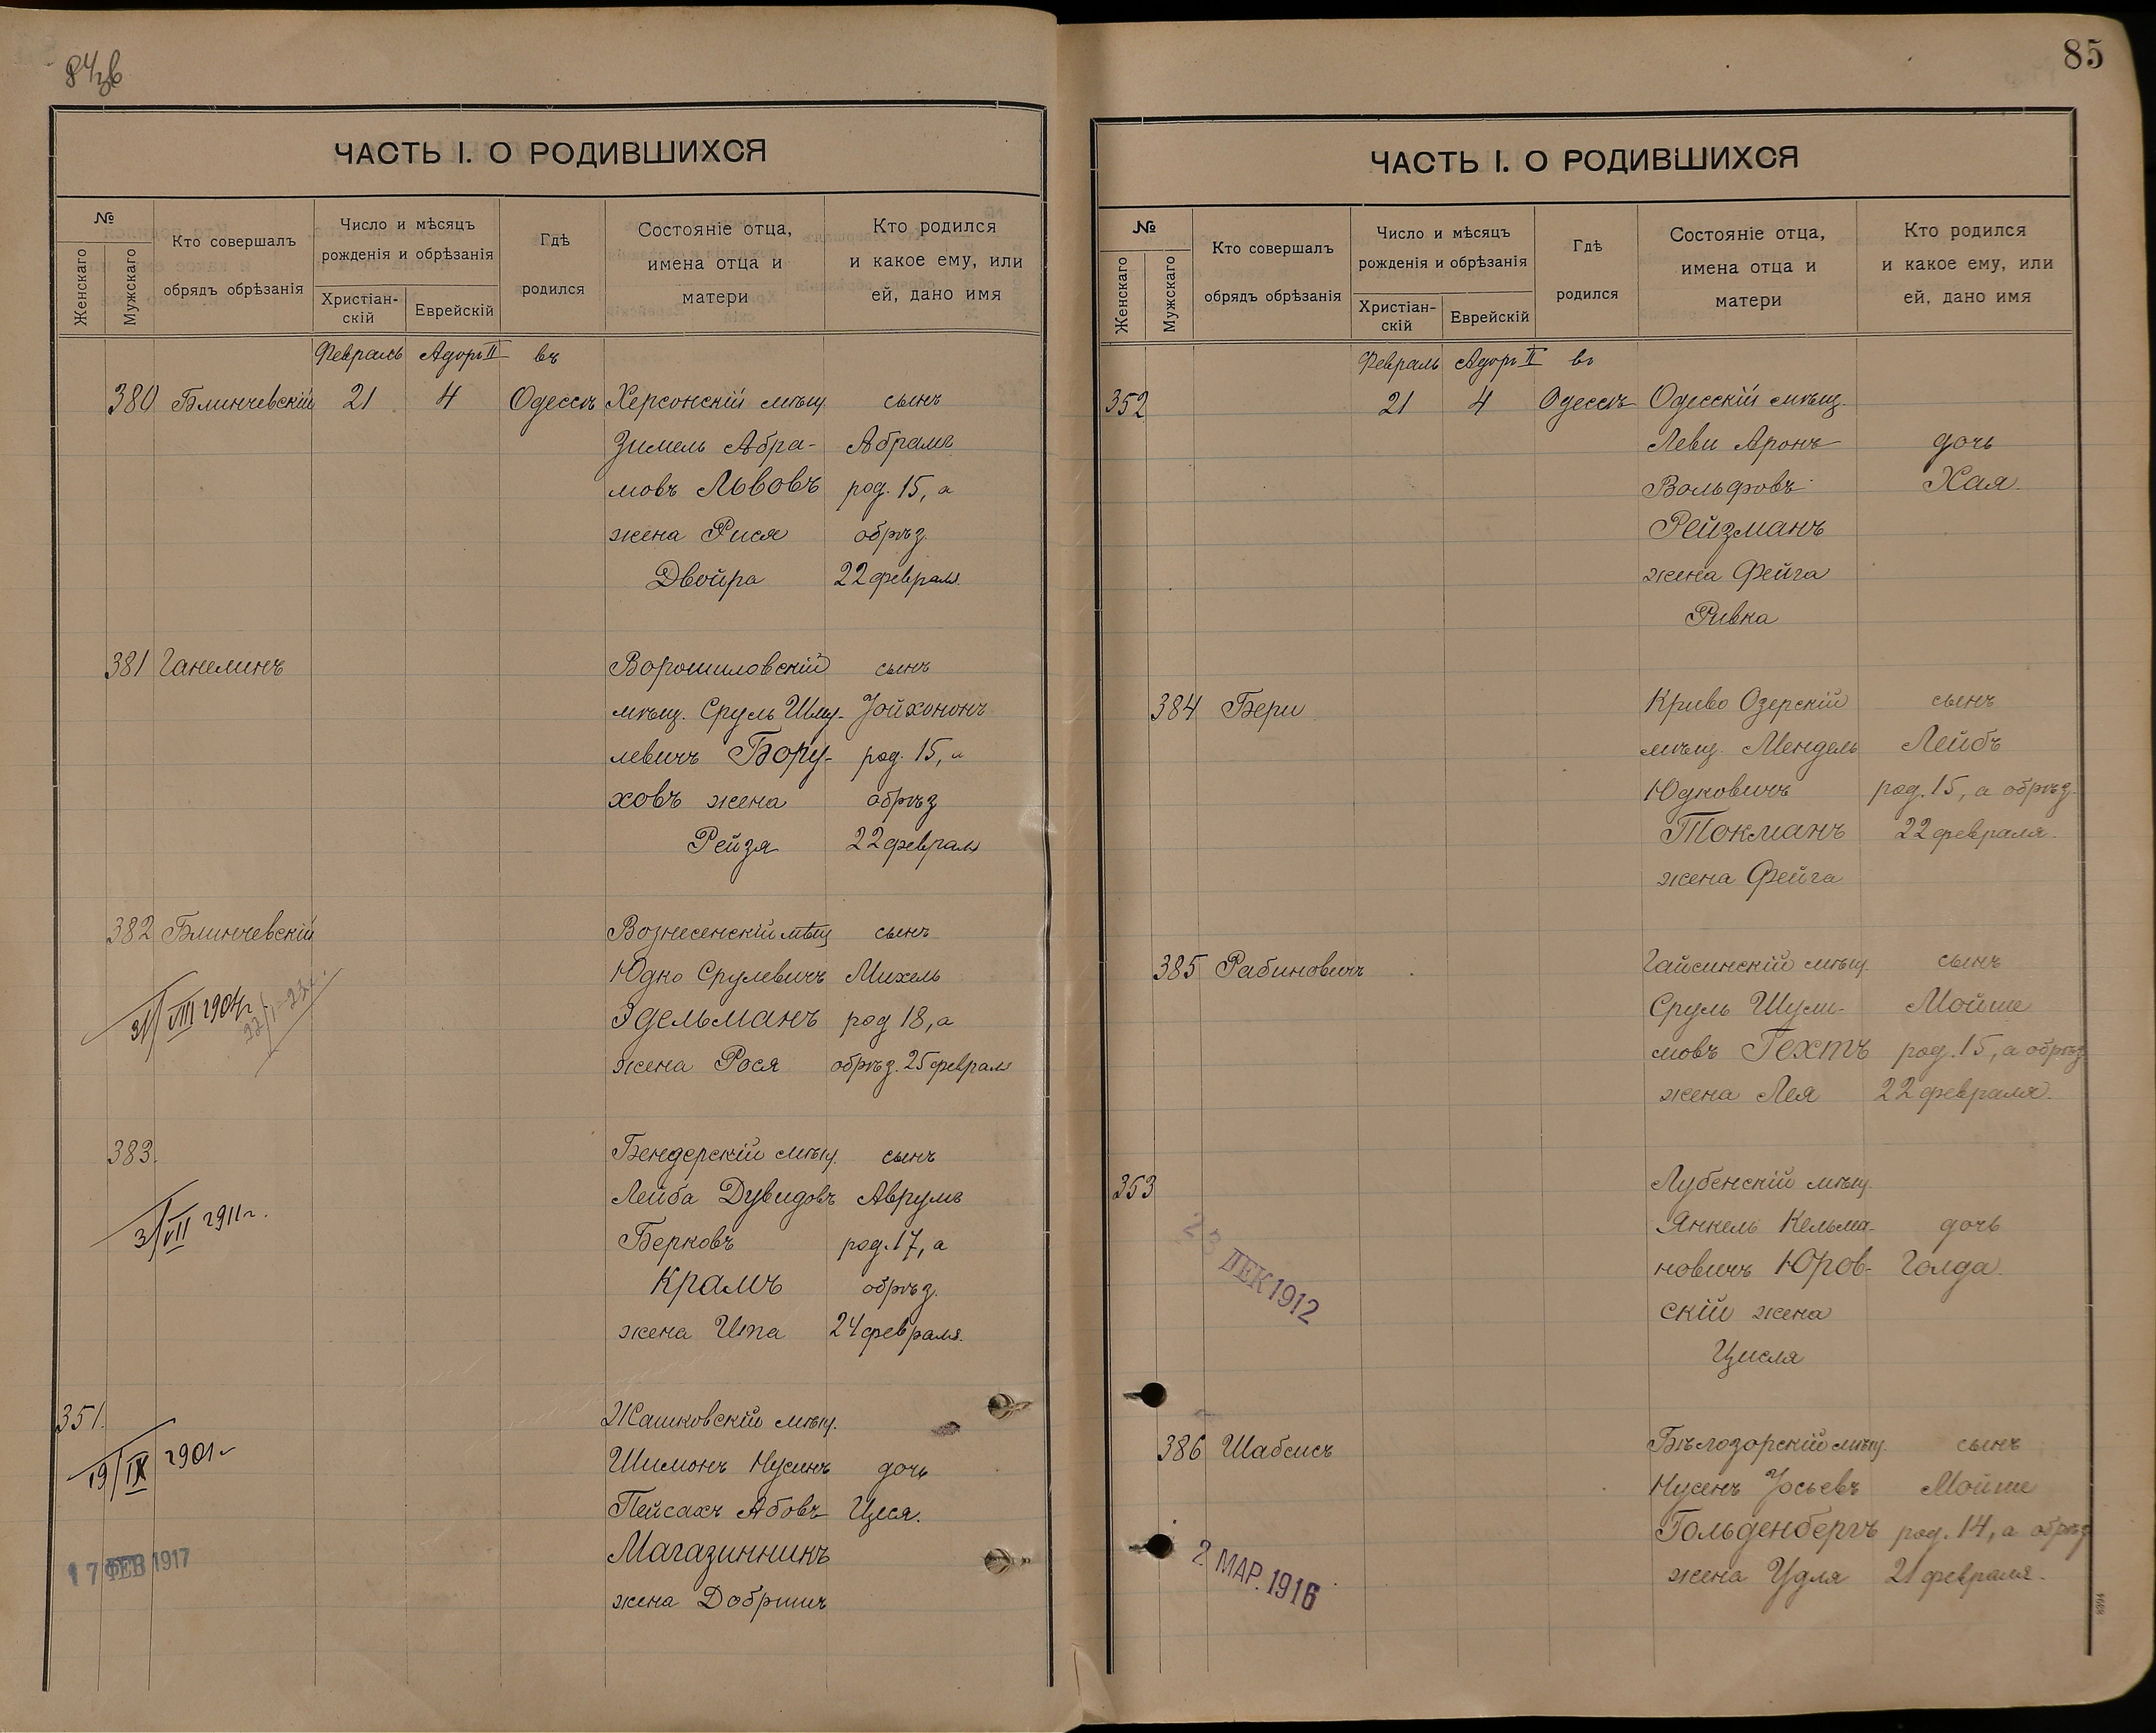 84зв
ЧАСТЬ I. О РОДИВШИХСЯ
№
Женскаго
Мужскаго
Кто совершалъ
обрядъ обрѣзанія
Число и мѣсяцъ
рожденія и обрѣзанія
Христіан-
скій
Еврейскій
Гдѣ
родился
Состояніе отца,
имена отца и
матери
Кто родился
и какое ему, или
ей, дано имя
Февраль Адоръ II въ
380 Блинчевскій 21 4 Одессѣ Херсонскій мѣщ сынъ
Зимель Абра- Абрамъ
мовъ Львовъ род. 15, а
жена Рися обрѣз.
Двойра 22 февраля
381 Ганелинъ Ворошиловскій сынъ
мѣщ. Сруль Шму- Іойхононъ
левичъ Бору- род. 15, а
ховъ жена обрѣз
Рейзя 22 февраля
382 Блинчевскій Вознесенскій мѣщ сынъ
Юдко Срулевичъ Михель
Эдельманъ род 18, а
жена Рося обрѣз. 25 февраля
31/VIII 1904г
383. Бендерскій мѣщ. сынъ
Лейба Дувидовъ Аврумъ
Берковъ род. 17, а
Крамъ обрѣз.
жена Ита 24 февраля.
3/VII 1911г.
351. Жашковскій мѣщ.
Шимонъ Нусинъ дочь
Пейсахъ Абовъ Цеся.
Магазинникъ
жена Добришъ
19/IX 1901г
17 ФЕВ 1917
85
ЧАСТЬ I. О РОДИВШИХСЯ
№
Женскаго
Мужскаго
Кто совершалъ
обрядъ обрѣзанія
Число и мѣсяцъ
рожденія и обрѣзанія
Христіан-
скій
Еврейскій
Гдѣ
родился
Состояніе отца,
имена отца и
матери
Кто родился
и какое ему, или
ей, дано имя
Февраль Адоръ II въ
352 21 4 Одессѣ Одесскій мѣщ.
Леви Аронъ дочь
Вольфовъ Хая.
Рейзманъ
жена Фейга
Ривка
384 Бери Криво Озерскій сынъ
мѣщ. Мендель Лейбъ
Юдковичъ род. 15, а обрѣз.
Токманъ 22 февраля.
жена Фейга
385 Рабиновичъ Гайсинскій мѣщ. сынъ
Сруль Шули- Мойше
мовъ Гехтъ род. 15, а обрѣз
жена Лея 22 февраля.
353 Лубенскій мѣщ
Янкель Кельма- дочь
новичъ Юров- Голда.
скій жена
Цисля
23 ДЕК 1912
386 Шабсисъ Бѣлозорскій мѣщ. сынъ
Нусенъ Іосьевъ Мойше
Гольденбергъ род. 14, а обрѣз
жена Удля 21 февраля.
2 МАР. 1916